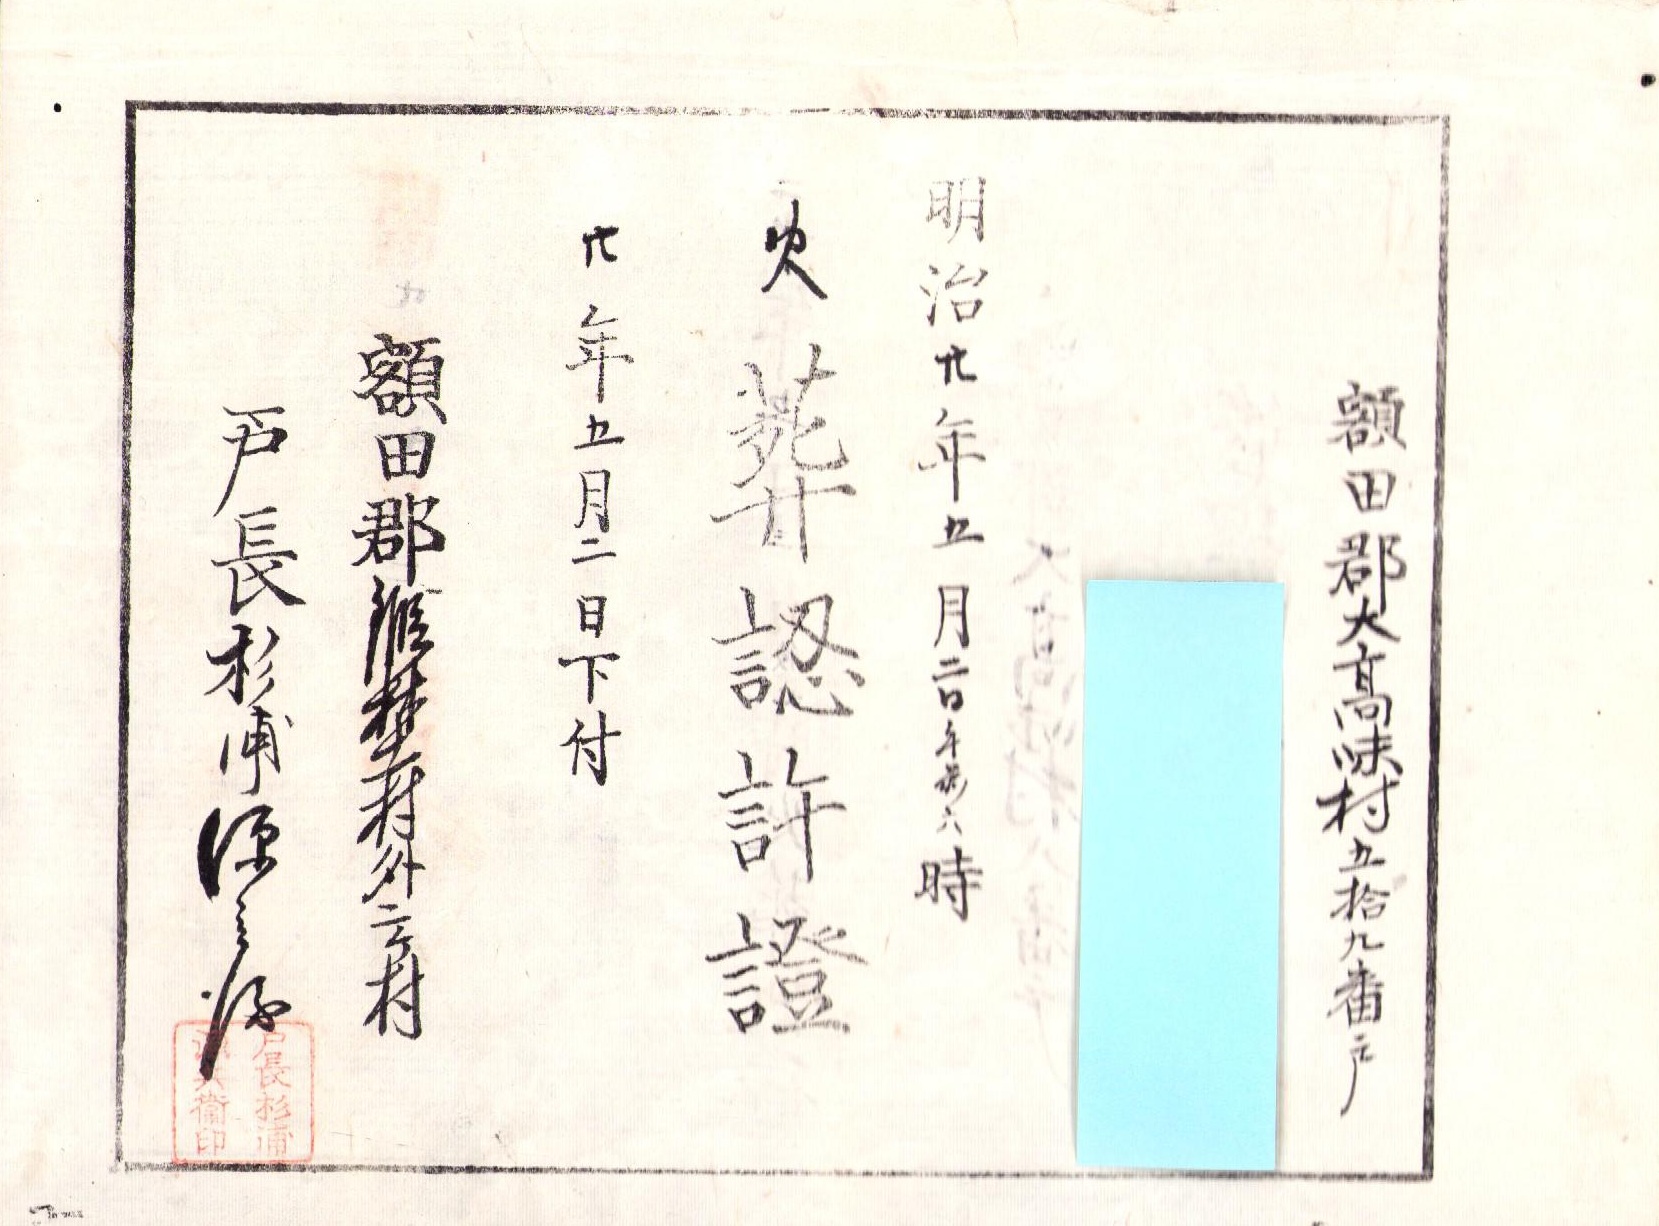 額田郡大高味村五拾九番戸
明治廿年五月二日午後六時
火葬認許證
廿年五月二日下付
額田郡 村外 村
戸長杉浦源兵衛
戸長杉浦
源兵衛印